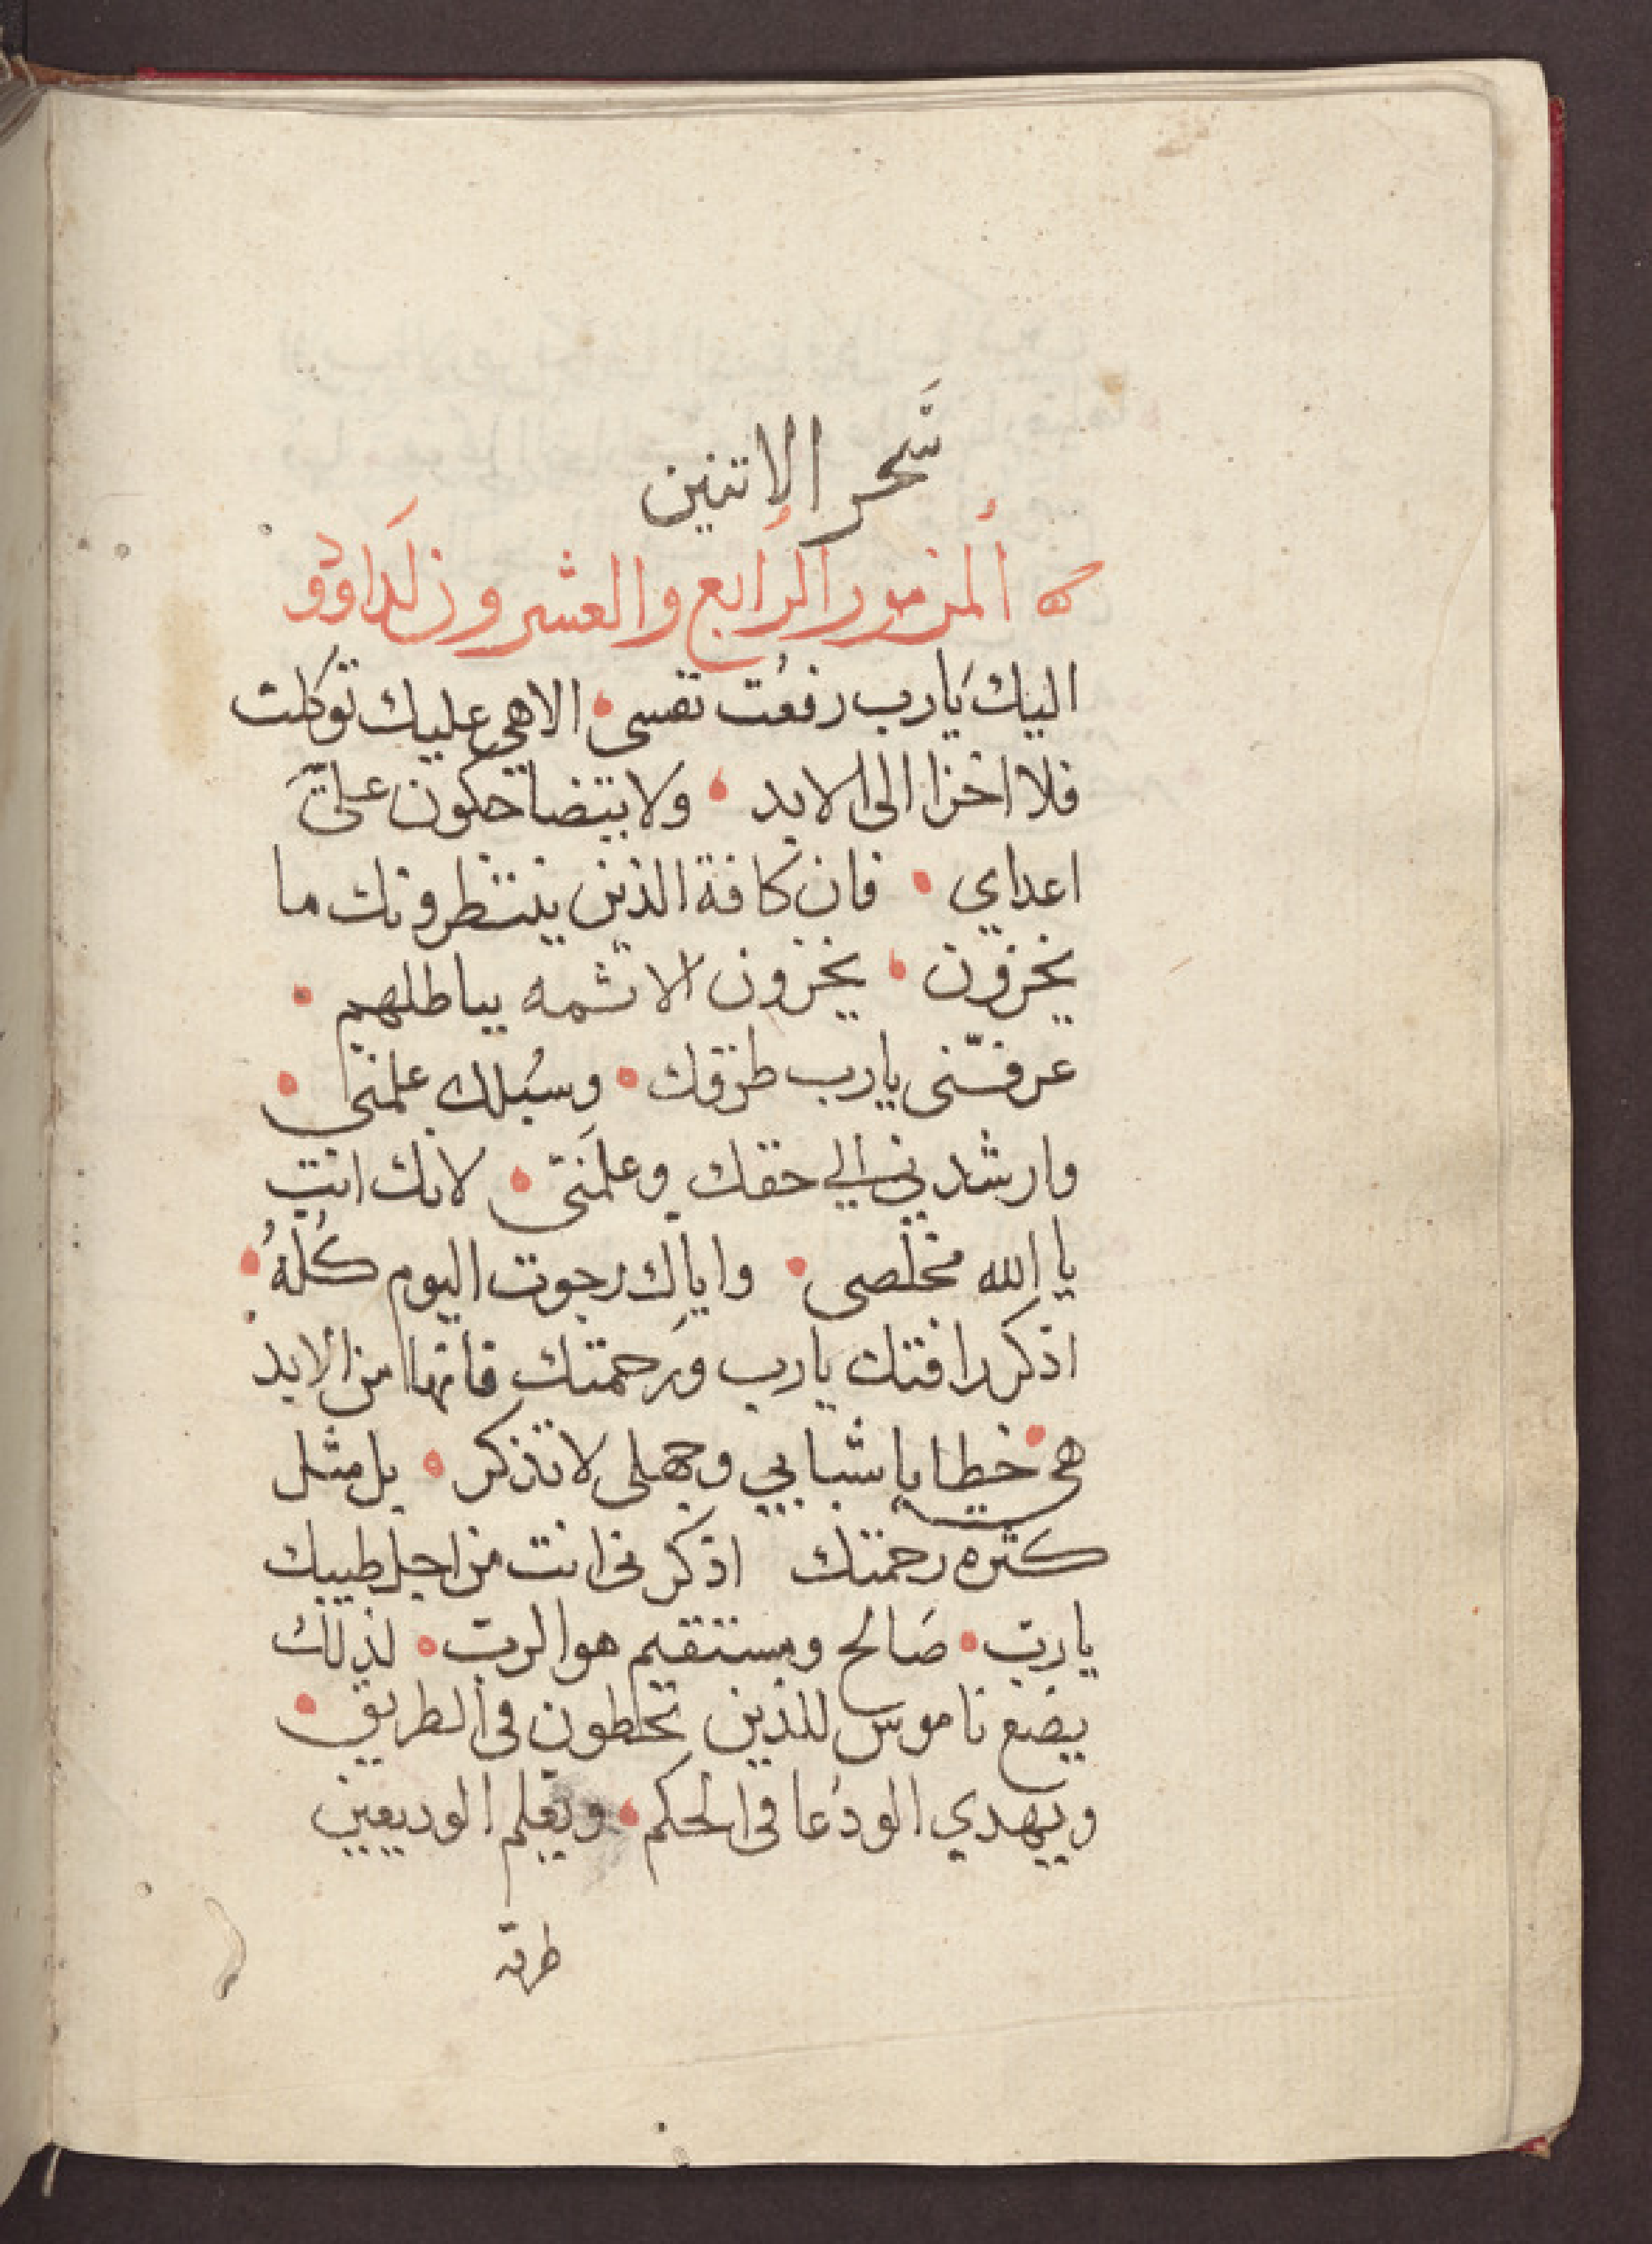 سَحر الاتنين
المزمور الرابع والعشرون لداوود
اليك يارب رفعُت نفسى • الاهي عليك توكلت
فلا اخزا الى الابد • ولا يتضاحكون عليَّ
اعداي • فان كافة الذين ينتظرونك ما
يخزون • يخزون الاثمه بباطلهم •
عرفّنى يارب طرقك • وسُبلك علمنى •
وارشدني الي حقك وعلمَنى • لانك انت
يا الله مخلصى • واياك رجوت اليوم كُلهُ •
اذكر رافتك يارب ورَحمتك فانها من الابد
هى • خطايا شبابي وجهلى لا تذكر • بل مثل
كثره رحمتك اذكرنى انت من اجل طيبك
يارب • صَالح ومستقيم هو الرب • لذلك
يضع ناموس للذين يخطون فى الطريق •
ويهدي الودُعا فى الحكم • ويعلم الوديعين
طرقه